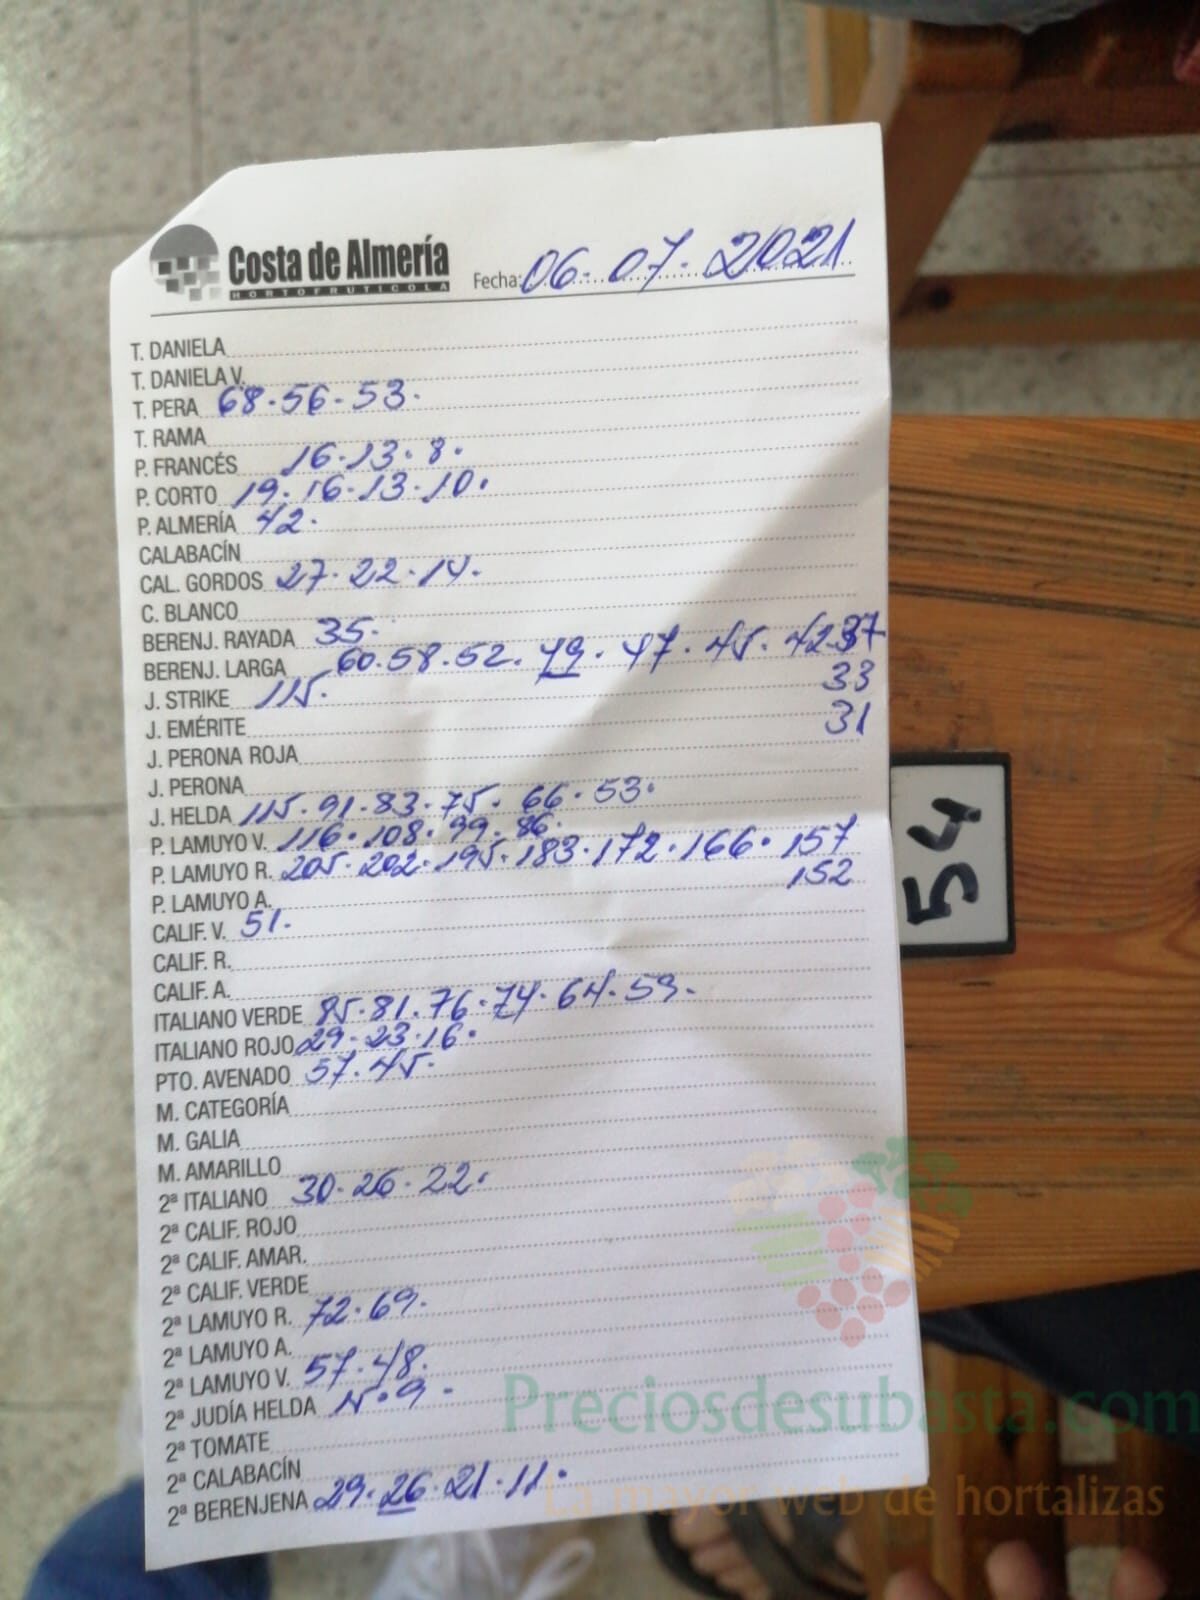 Costa de Almería
HORTOFRUTICOLA
Fecha: 06-07-2021
T. DANIELA
T. DANIELA V.
T. PERA 68-56-53.
T. RAMA
P. FRANCÉS 16-13-8.
P. CORTO 19-16-13-10.
P. ALMERÍA 42.
CALABACÍN
CAL. GORDOS 27-22-14.
C. BLANCO
BERENJ. RAYADA 35.
BERENJ. LARGA 60-58-52-49-47-45-42-37
33
J. STRIKE 115.
31
J. EMÉRITE
J. PERONA ROJA
J. PERONA
J. HELDA 115-91-83-75-66-53.
P. LAMUYO V. 116-108-99-86.
P. LAMUYO R. 205-202-195-183-172-166-157
152
P. LAMUYO A.
CALIF. V. 51.
CALIF. R.
CALIF. A.
ITALIANO VERDE 85-81-76-74-64-59.
ITALIANO ROJO 29-23-16.
PTO. AVENADO 57-45.
M. CATEGORÍA
M. GALIA
M. AMARILLO
2ª ITALIANO 30-26-22.
2ª CALIF. ROJO
2ª CALIF. AMAR.
2ª CALIF. VERDE
2ª LAMUYO R. 72-69.
2ª LAMUYO A.
2ª LAMUYO V. 57-48.
2ª JUDÍA HELDA 15-9.
2ª TOMATE
2ª CALABACÍN
2ª BERENJENA 29-26-21-11.
54
Preciosdesubasta.com
La mayor web de hortalizas